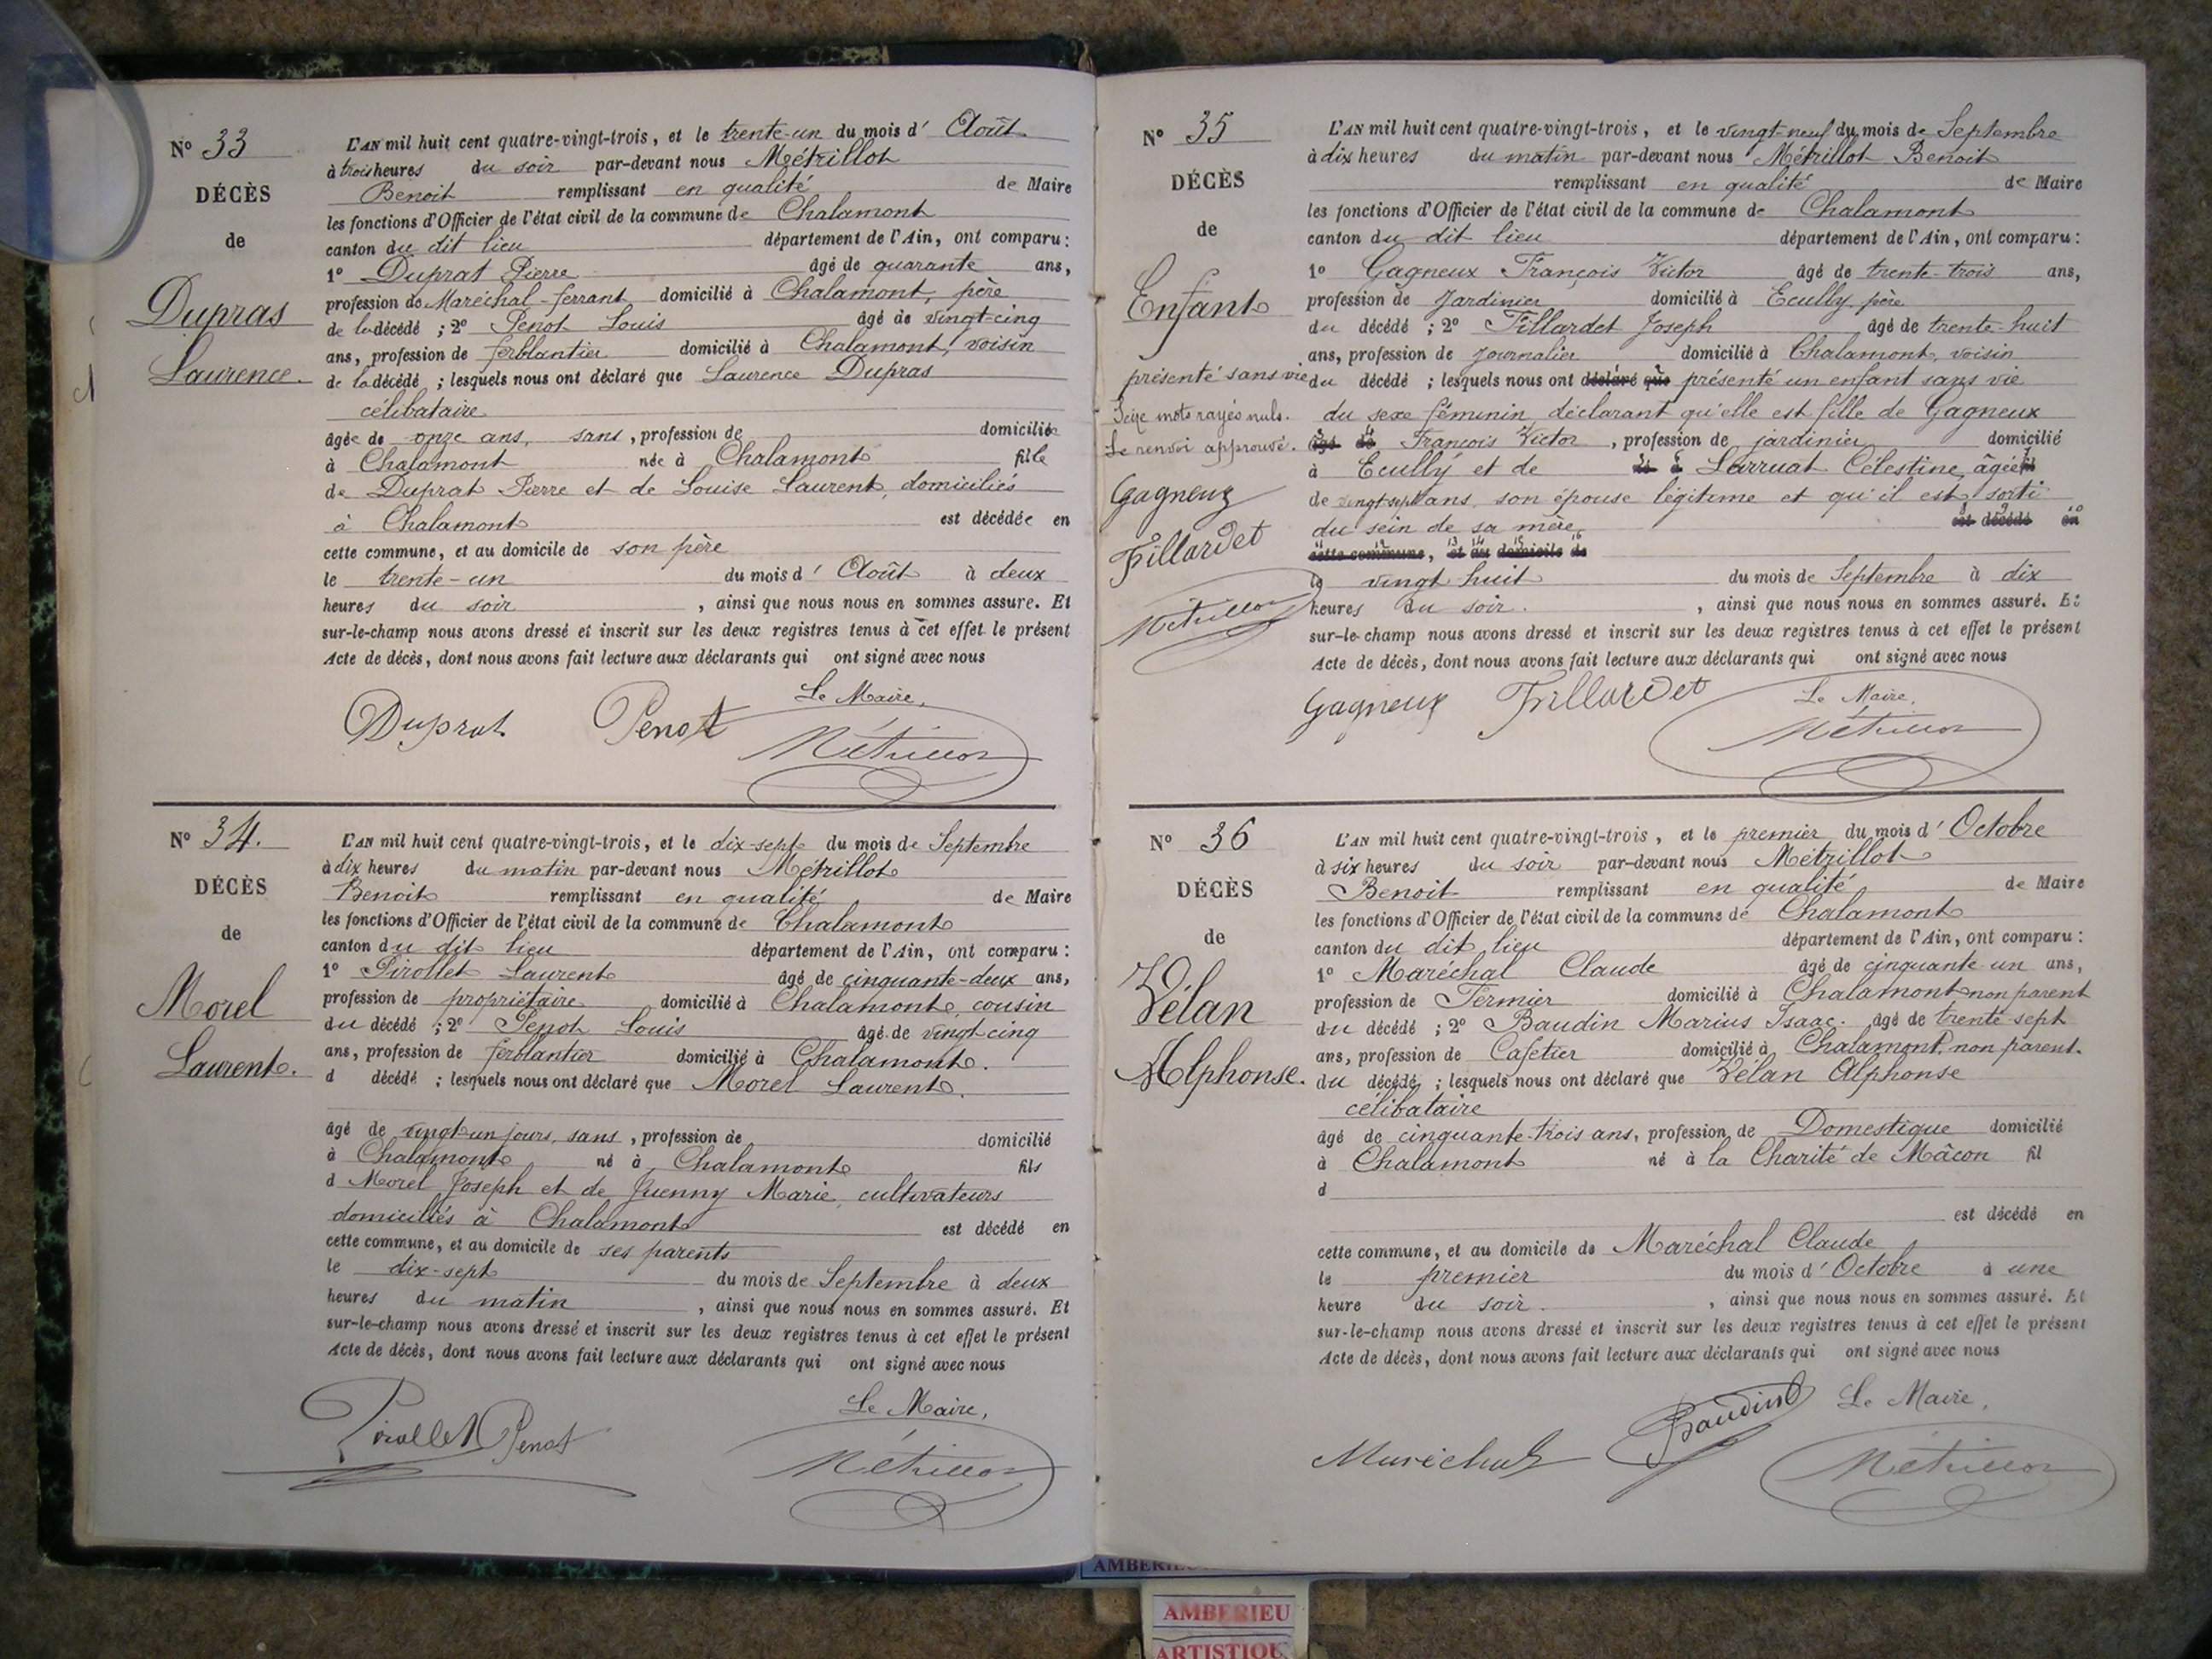 N° 33
DÉCÈS
de
Dupras
Laurence.
L'AN mil huit cent quatre-vingt-trois, et le trente-un du mois d' Août
à trois heures du soir par-devant nous Métrillot
Benoit remplissant en qualité de Maire
les fonctions d'Officier de l'état civil de la commune de Chalamont
canton du dit lieu département de l'Ain, ont comparu :
1° Duprat Pierre âgé de quarante ans,
profession de Maréchal-ferrant domicilié à Chalamont, père
de la décédé ; 2° Penot Louis âgé de vingt-cinq
ans, profession de ferblantier domicilié à Chalamont, voisin
de la décédé ; lesquels nous ont déclaré que Laurence Dupras
célibataire
âgée de onze ans, sans, profession de domiciliée
à Chalamont née à Chalamont fille
de Duprat Pierre et de Louise Laurent, domiciliés
à Chalamont est décédée en
cette commune, et au domicile de son père
le trente-un du mois d' Août à deux
heures du soir, ainsi que nous nous en sommes assuré. Et
sur-le-champ nous avons dressé et inscrit sur les deux registres tenus à cet effet le présent
Acte de décès, dont nous avons fait lecture aux déclarants qui ont signé avec nous
Le Maire,
Duprat Penot Métrillot
N° 34.
DÉCÈS
de
Morel
Laurent.
L'AN mil huit cent quatre-vingt-trois, et le dix-sept du mois de Septembre
à dix heures du matin par-devant nous Métrillot
Benoit remplissant en qualité de Maire
les fonctions d'Officier de l'état civil de la commune de Chalamont
canton du dit lieu département de l'Ain, ont comparu :
1° Pirollet Laurent âgé de cinquante-deux ans,
profession de propriétaire domicilié à Chalamont, cousin
du décédé ; 2° Penot Louis âgé de vingt-cinq
ans, profession de ferblantier domicilié à Chalamont.
d décédé ; lesquels nous ont déclaré que Morel Laurent.
âgé de vingt-un jours, sans, profession de domicilié
à Chalamont né à Chalamont fils
d Morel Joseph et de Juenny Marie, cultivateurs
domiciliés à Chalamont est décédé en
cette commune, et au domicile de ses parents
le dix-sept du mois de Septembre à deux
heures du matin, ainsi que nous nous en sommes assuré. Et
sur-le-champ nous avons dressé et inscrit sur les deux registres tenus à cet effet le présent
Acte de décès, dont nous avons fait lecture aux déclarants qui ont signé avec nous
Le Maire,
Pirollet Penot Métrillot
N° 35
DÉCÈS
de
Enfant
présenté sans vie
Seize mots rayés nuls.
Le renvoi approuvé.
Gagneux
Trillardet
Métrillot
L'AN mil huit cent quatre-vingt-trois, et le vingt-neuf du mois de Septembre
à dix heures du matin par-devant nous Métrillot Benoit
remplissant en qualité de Maire
les fonctions d'Officier de l'état civil de la commune de Chalamont
canton du dit lieu département de l'Ain, ont comparu :
1° Gagneux François Victor âgé de trente-trois ans,
profession de Jardinier domicilié à Ecully, père
du décédé ; 2° Trillardet Joseph âgé de trente-huit
ans, profession de Journalier domicilié à Chalamont, voisin
du décédé ; lesquels nous ont déclaré que présenté un enfant sans vie
du sexe féminin, déclarant qu'elle est fille de Gagneux
âgé de François Victor, profession de jardinier domicilié
à Ecully et de Larruat Célestine, âgée
de vingt-sept ans, son épouse légitime et qu'il est sorti
du sein de sa mère est décédé en
cette commune, et au domicile de
le vingt huit du mois de Septembre à dix
heures du soir., ainsi que nous nous en sommes assuré. Et
sur-le-champ nous avons dressé et inscrit sur les deux registres tenus à cet effet le présent
Acte de décès, dont nous avons fait lecture aux déclarants qui ont signé avec nous
Le Maire,
Gagneux Trillardet Métrillot
N° 36
DÉCÈS
de
Vélan
Alphonse.
L'AN mil huit cent quatre-vingt-trois, et le premier du mois d' Octobre
à six heures du soir par-devant nous Métrillot
Benoit remplissant en qualité de Maire
les fonctions d'Officier de l'état civil de la commune de Chalamont
canton du dit lieu département de l'Ain, ont comparu :
1° Maréchal Claude âgé de cinquante-un ans,
profession de Fermier domicilié à Chalamont non parent
du décédé ; 2° Baudin Marius Isaac. âgé de trente-sept
ans, profession de Cafetier domicilié à Chalamont, non parent.
du décédé ; lesquels nous ont déclaré que Vélan Alphonse
célibataire
âgé de cinquante-trois ans, profession de Domestique domicilié
à Chalamont né à la Charité de Mâcon fil
d
est décédé en
cette commune, et au domicile de Maréchal Claude
le premier du mois d' Octobre à une
heure du soir., ainsi que nous nous en sommes assuré. Et
sur-le-champ nous avons dressé et inscrit sur les deux registres tenus à cet effet le présent
Acte de décès, dont nous avons fait lecture aux déclarants qui ont signé avec nous
Le Maire,
Maréchal Baudin Métrillot
AMBERIEU
ARTISTIQU